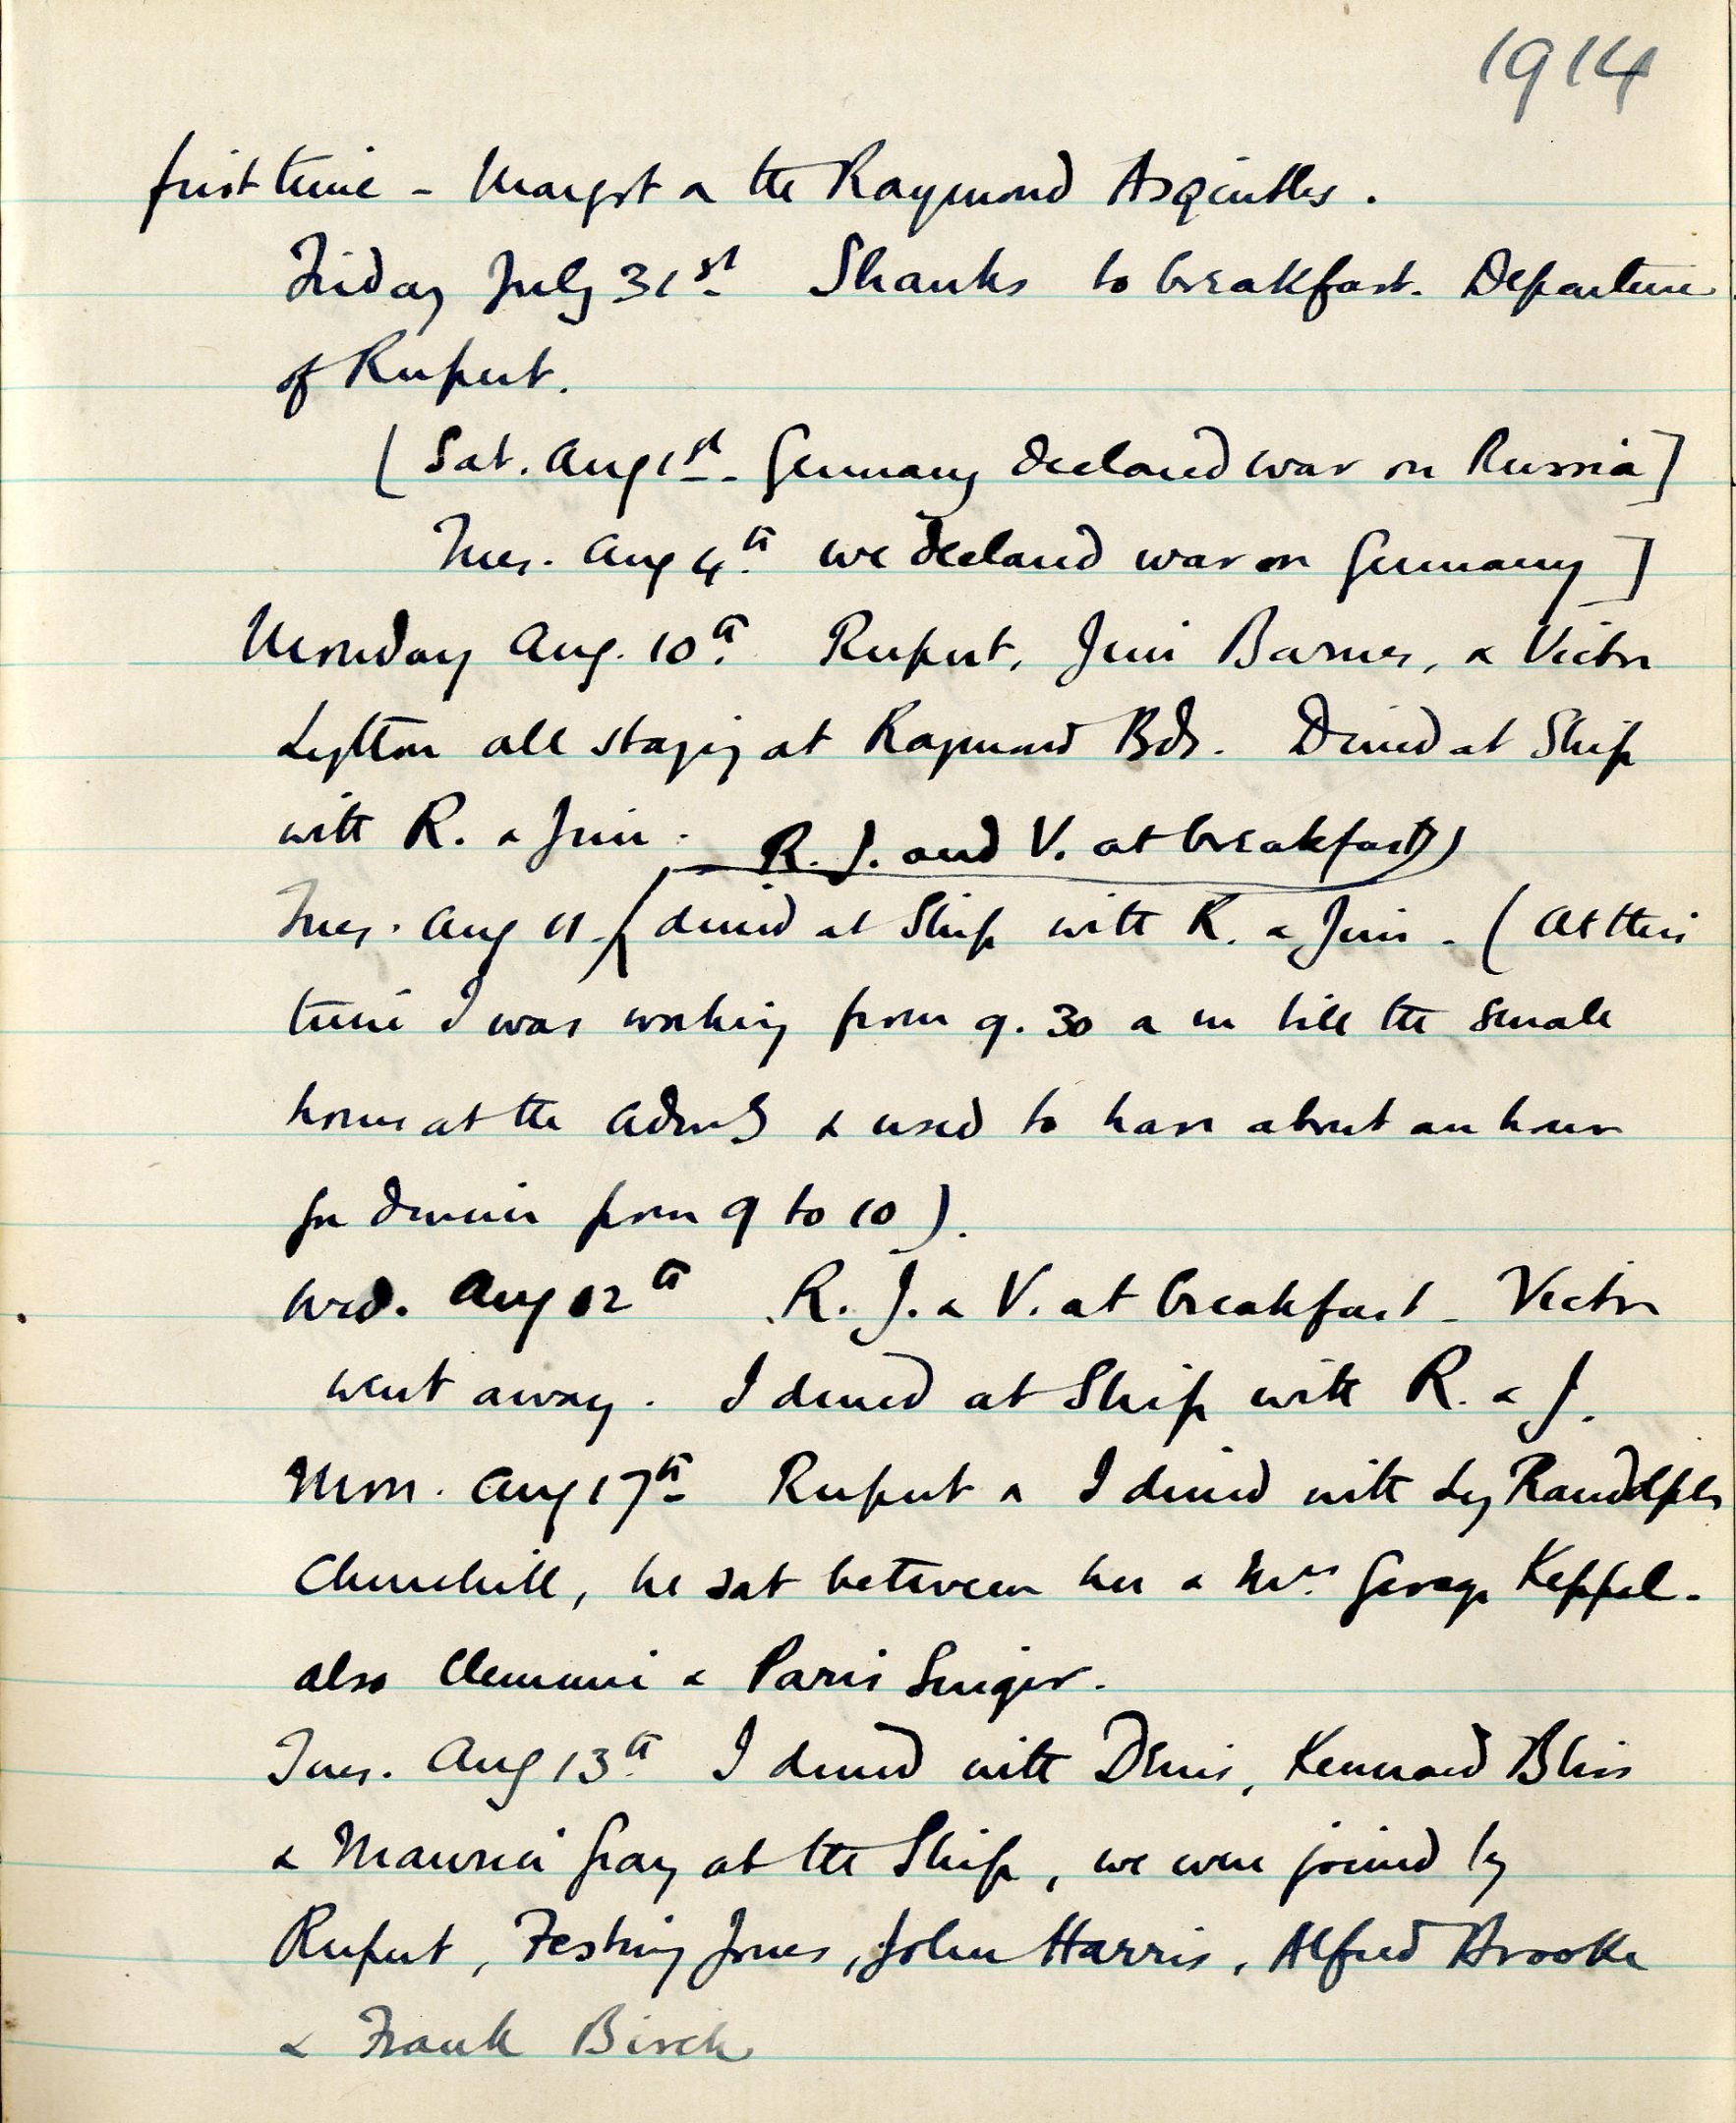 1914
first time - Margot & the Raymond Asquiths.
Friday July 31st Shanks to breakfast. Departure
of Rupert.
[Sat. Aug 1st. Germany declared war on Russia]
Tues. Aug 4th we declared war on Germany]
Monday Aug. 10th Rupert, Jim Barnes, & Victor
Lytton all staying at Raymond Bds. Dined at Ship
with R. & Jim.
R. J. and V. at breakfast)
Tues. Aug 11. dined at Ship with R. & Jim. (At this
time I was working from 9.30 a m till the small
hours at the Admlty & used to have about an hour
for dinner from 9 to 10).
Wed. Aug 12th R. J. & V. at breakfast - Victor
went away. I dined at Ship with R. & J.
Mon. Aug 17th Rupert & I dined with Ly Randolph
Churchill, he sat between her & Mrs. George Keppel.
also Clemmie & Paris Singer.
Tues. Aug 13th I dined with Denis, Kennard Bliss
& Maurice Gray at the Ship, we were joined by
Rupert, Festing Jones, John Harris, Alfred Brooke
& Frank Birch